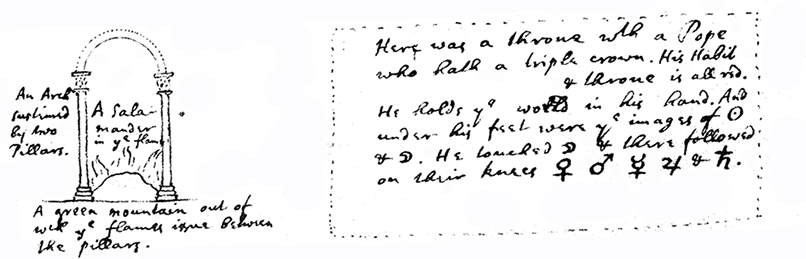 An Arch
sustined
by two
Pillars.
A Sala-
mander
in yᵉ flame
A green mountain out of
wch yᵉ flames issue between
the pillars.
Here was a throne wth a Pope
who hath a triple crown. His Habit
& throne is all red.
He holds yᵉ world in his hand. And
under his feet were yᵉ images of ☉
& ☽. He touched ☽ & there followed
on their knees ♀ ♂ ☿ ♃ & ♄.